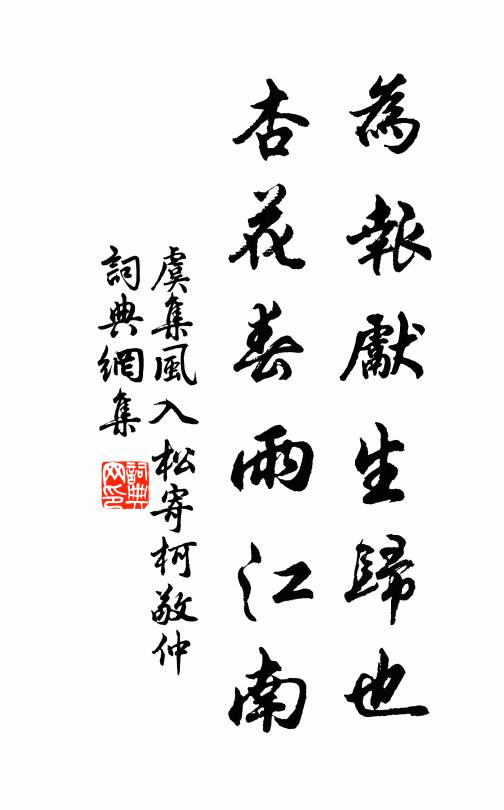 為報獻生歸也
杏花春雨江南
虞集風入松寄柯敬仲
詞典網集
詞典網印